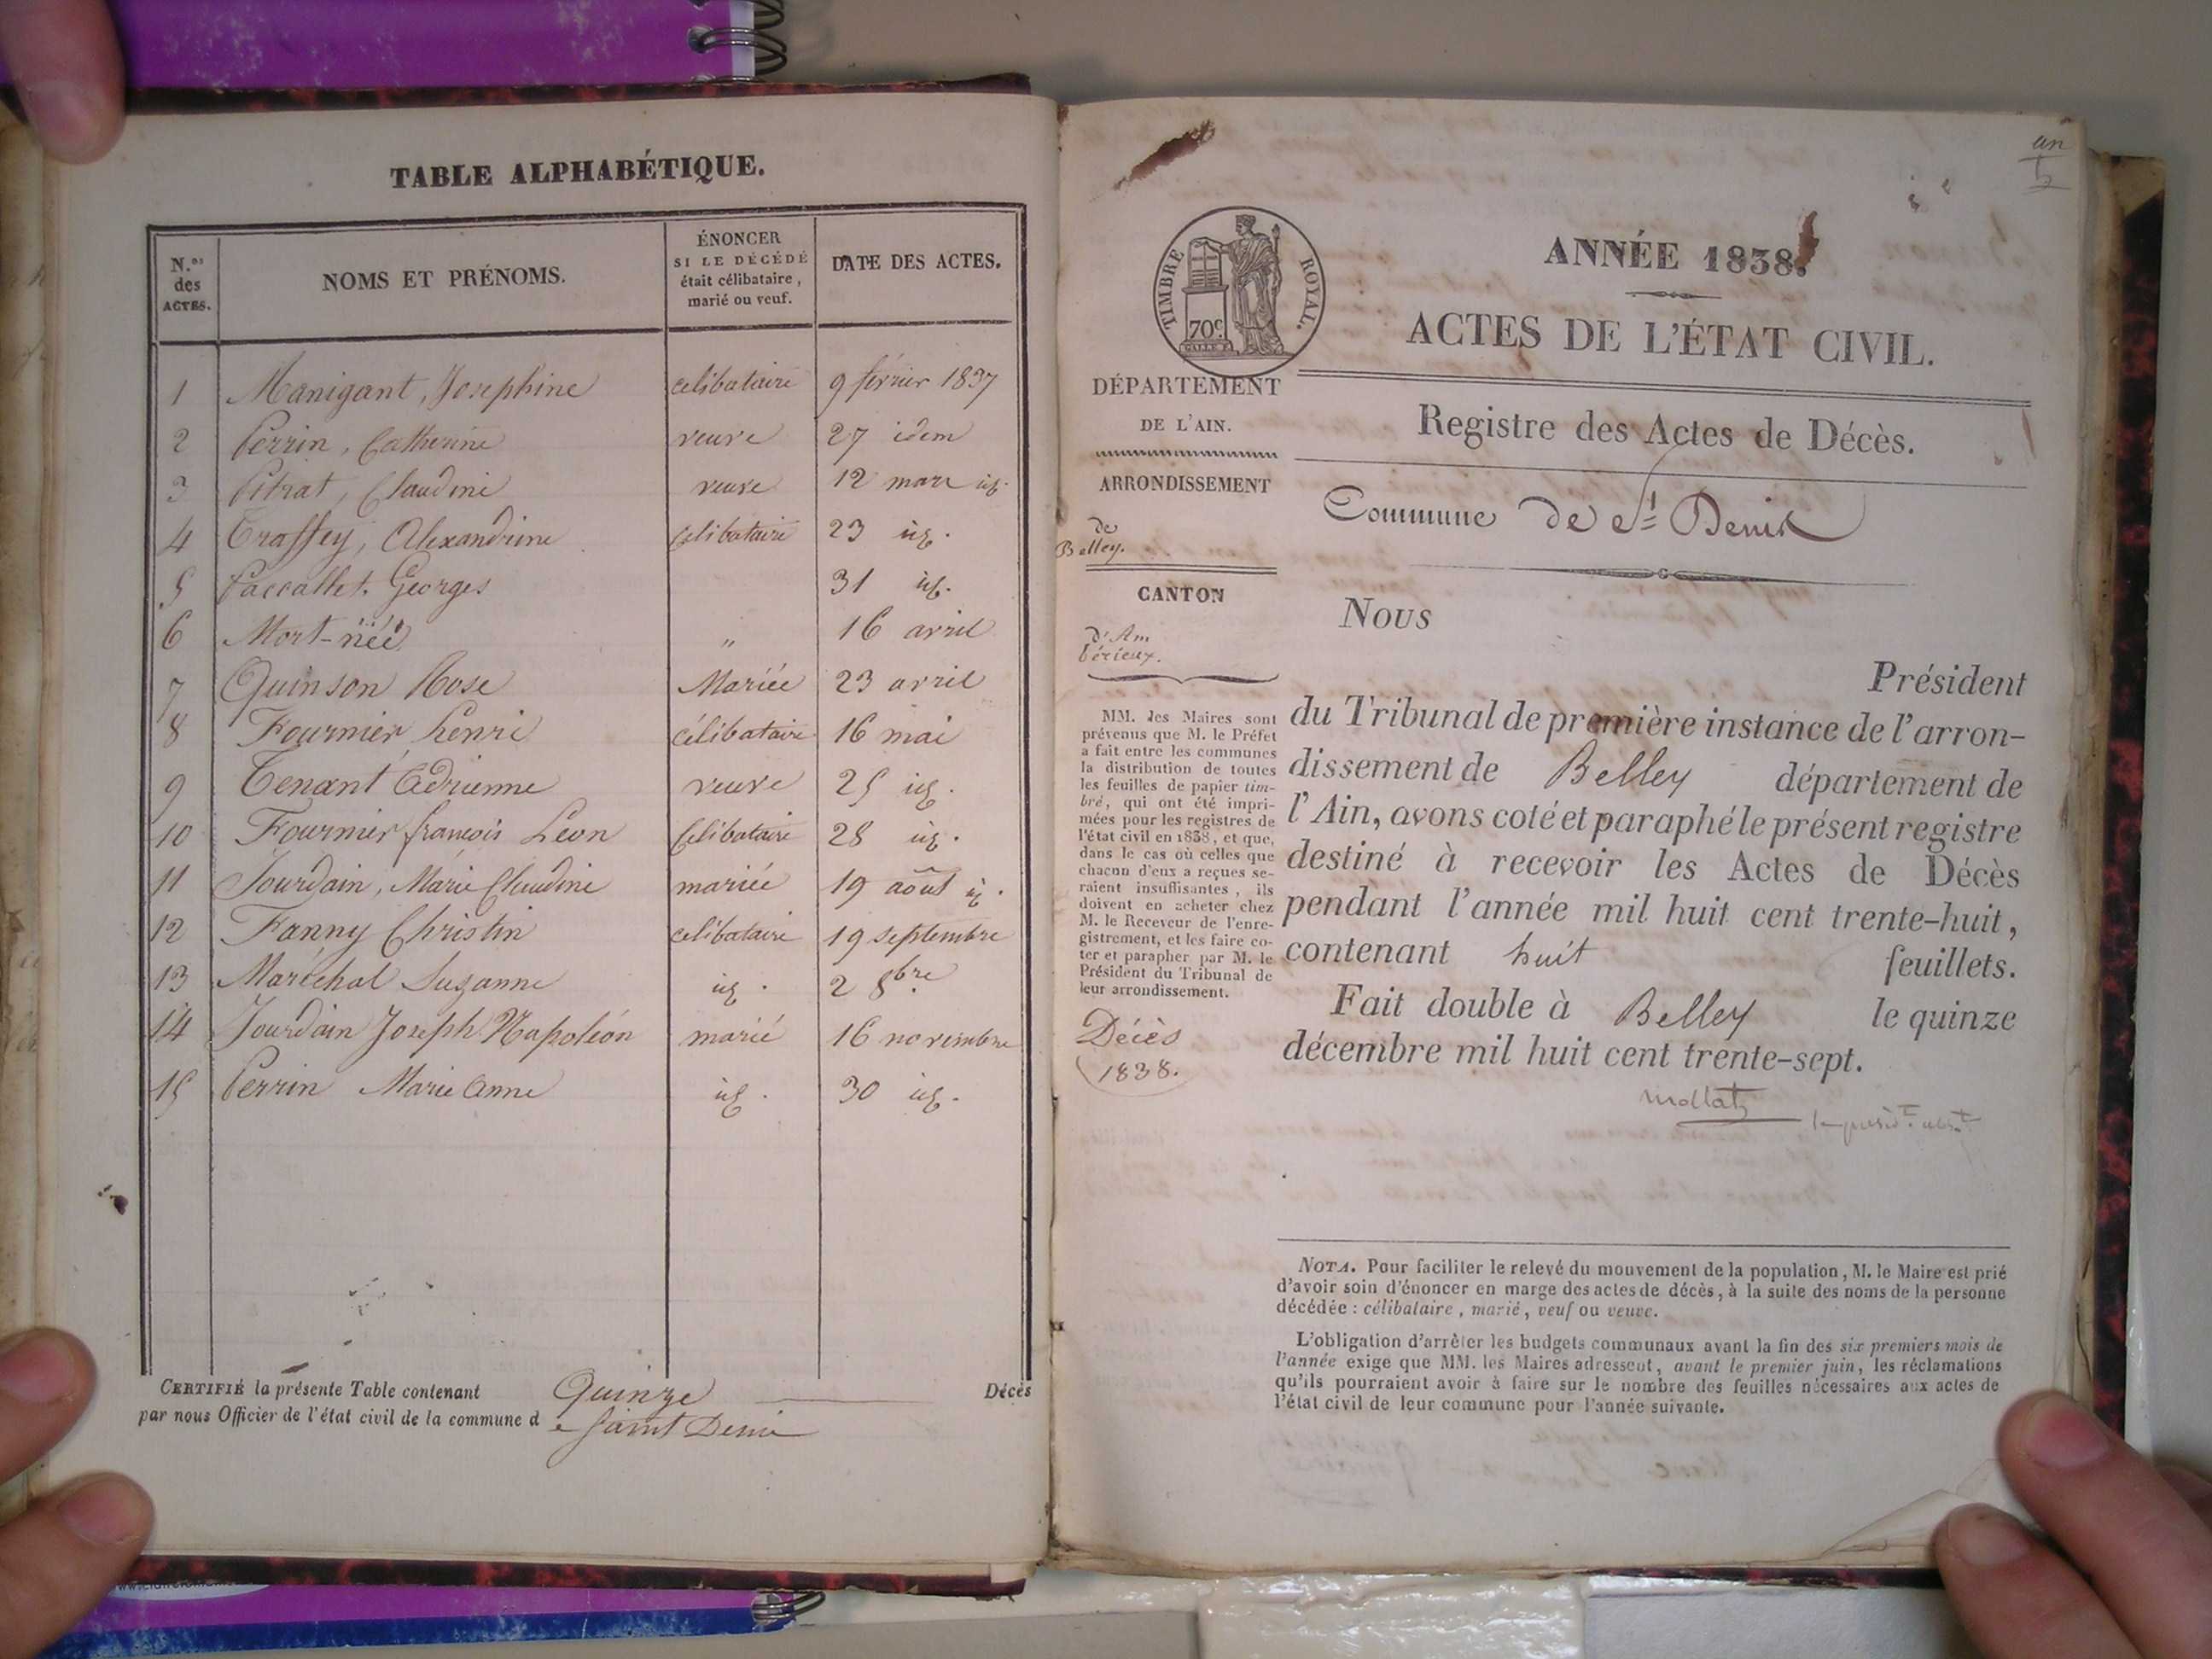 TABLE ALPHABÉTIQUE.
N.os des ACTES.
NOMS ET PRÉNOMS.
ÉNONCER
SI LE DÉCÉDÉ
était célibataire,
marié ou veuf.
DATE DES ACTES.
1 Manigant, Josephine celibataire 9 février 1837
2 Perrin, Catherine veuve 27 idem
3 Pitrat, Claudine veuve 12 mars id.
4 Traffey, Alexandrine Celibataire 23 id.
5 Paccallet. Georges 31 id.
6 Mort-née " 16 avril
7 Quinson Rose Mariée 23 avril
8 Fournier henri célibataire 16 mai
9 Tenant Adrienne veuve 25 id.
10 Fournier francois Léon Celibataire 28 id.
11 Jourdain, Marie Claudine mariée 19 août id.
12 Fanny Christin celibataire 19 septembre
13 Maréchal Suzanne id. 2 8bre
14 Jourdain Joseph Napoléon marié 16 novembre
15 Perrin Marie Anne id. 30 id.
CERTIFIÉ la présente Table contenant Quinze Décès
par nous Officier de l'état civil de la commune d e Saint Denis
un
TIMBRE ROYAL.
70c.
ANNÉE 1838.
ACTES DE L'ÉTAT CIVIL.
DÉPARTEMENT
DE L'AIN.
ARRONDISSEMENT
de
Belley.
CANTON
d'Am
bérieux.
MM. les Maires sont
prévenus que M. le Préfet
a fait entre les communes
la distribution de toutes
les feuilles de papier tim-
bré, qui ont été impri-
mées pour les registres de
l'état civil en 1838, et que,
dans le cas où celles que
chacun d'eux a reçues se-
raient insuffisantes, ils
doivent en acheter chez
M. le Receveur de l'enre-
gistrement, et les faire co-
ter et parapher par M. le
Président du Tribunal de
leur arrondissement.
Décès
1838.
Registre des Actes de Décès.
Commune de St Denis
Nous
Président
du Tribunal de première instance de l'arron-
dissement de Belley département de
l'Ain, avons coté et paraphé le présent registre
destiné à recevoir les Actes de Décès
pendant l'année mil huit cent trente-huit,
contenant huit feuillets.
Fait double à Belley le quinze
décembre mil huit cent trente-sept.
NOTA. Pour faciliter le relevé du mouvement de la population, M. le Maire est prié
d'avoir soin d'énoncer en marge des actes de décès, à la suite des noms de la personne
décédée : célibataire, marié, veuf ou veuve.
L'obligation d'arrêter les budgets communaux avant la fin des six premiers mois de
l'année exige que MM. les Maires adressent, avant le premier juin, les réclamations
qu'ils pourraient avoir à faire sur le nombre des feuilles nécessaires aux actes de
l'état civil de leur commune pour l'année suivante.